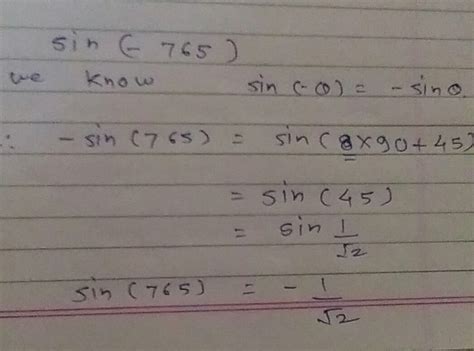 sin (- 765)
we know sin (-θ) = - sin θ.
∴ - sin (765) = sin (8×90+45)
= sin (45)
= sin 1/√2
sin (765) = - 1/√2